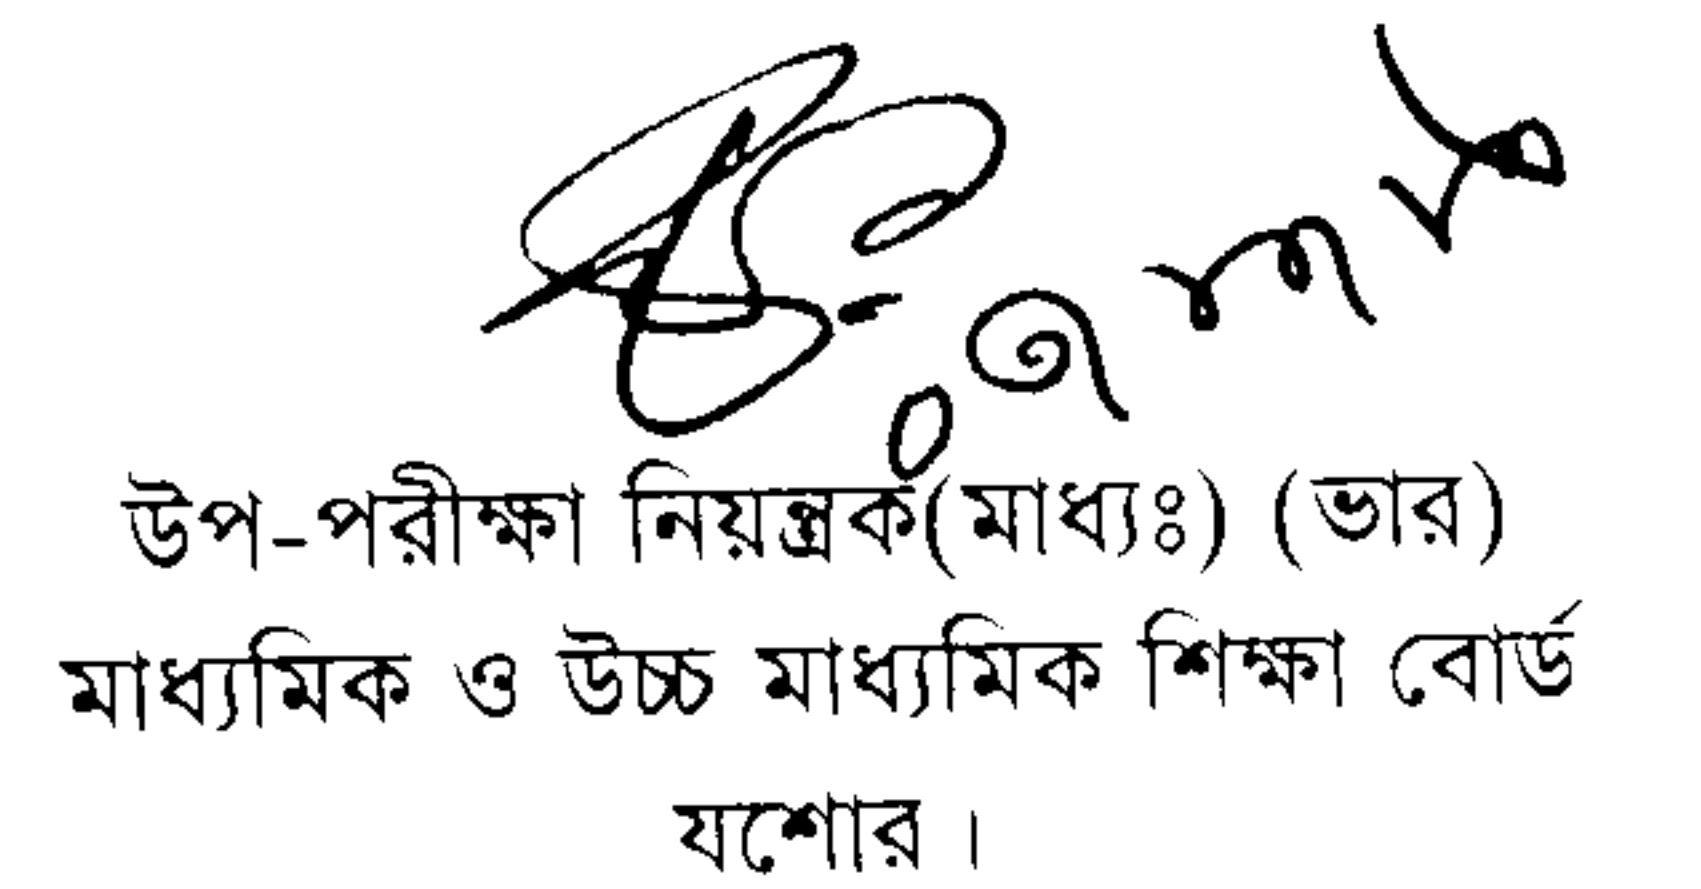 উপ-পরীক্ষা নিয়ন্ত্রক(মাধ্যঃ) (ভার)
মাধ্যমিক ও উচ্চ মাধ্যমিক শিক্ষা বোর্ড
যশোর ।